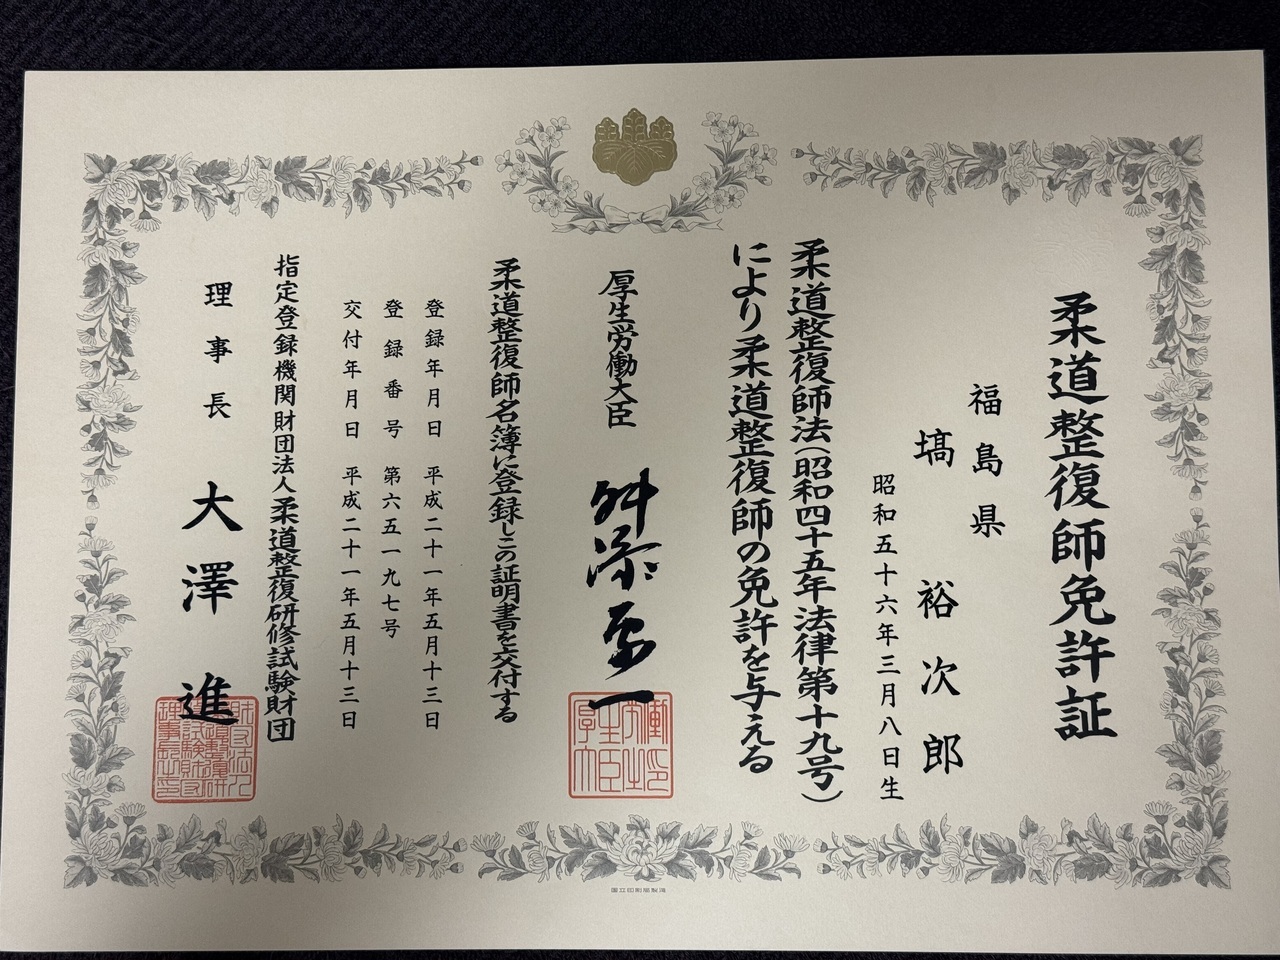 柔道整復師免許証
福島県
塙 裕次郎
昭和五十六年三月八日生
柔道整復師法（昭和四十五年法律第十九号）
により柔道整復師の免許を与える
厚生労働大臣 舛添要一
柔道整復師名簿に登録しこの証明書を交付する
登録年月日 平成二十一年五月十三日
登録番号 第六五一九七号
交付年月日 平成二十一年五月十三日
指定登録機関財団法人柔道整復研修試験財団
理事長 大澤進
厚生労働大臣之印
国立印刷局製造